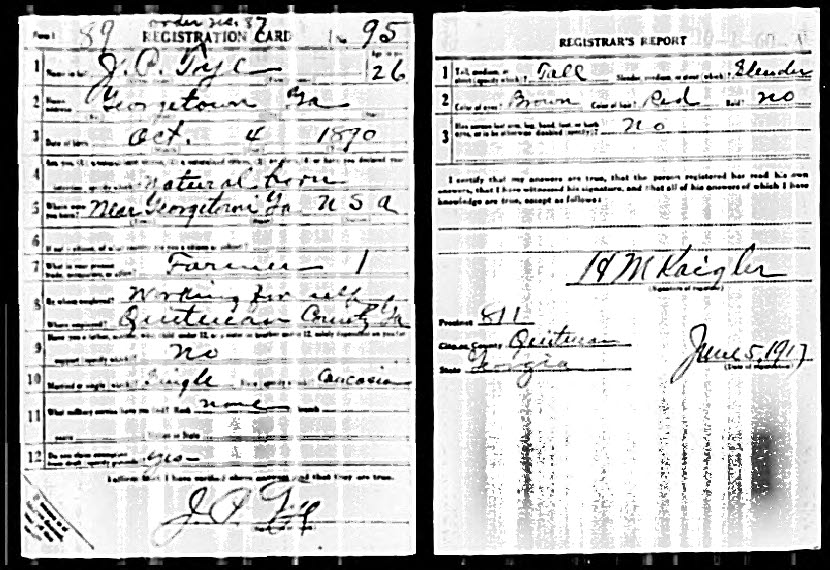 order no. 87
Form 1 89 REGISTRATION CARD No. 95
1 Name in full J. P. Tye Age, in yrs. 26
2 Home address Georgetown Ga
3 Date of birth Oct. 4 1890
4 Are you (1) a natural-born citizen, (2) a naturalized citizen, (3) an alien, (4) or have you declared your
intention (specify which)? Natural born
5 Where were you born? Near Georgetown Ga U S A
6 If not a citizen, of what country are you a citizen or subject?
7 What is your present trade, occupation, or office? Farmer 1
8 By whom employed? Working for self
Where employed? Quitman County Ga
9 Have you a father, mother, wife, child under 12, or a sister or brother under 12, solely dependent on you for
support (specify which)? No
10 Married or single (which)? Single Race (specify which)? Caucasian
11 What military service have you had? Rank none branch
years Nation or State
12 Do you claim exemption from draft (specify grounds)? Yes
I affirm that I have verified above answers and that they are true.
J. P. Tye
REGISTRAR'S REPORT
1 Tall, medium, or short (specify which)? Tall Slender, medium, or stout (which)? Slender
2 Color of eyes? Brown Color of hair? Red Bald? no
3 Has person lost arm, leg, hand, foot, or both eyes, or is he otherwise disabled (specify)? No
I certify that my answers are true, that the person registered has read his own
answers, that I have witnessed his signature, and that all of his answers of which I have
knowledge are true, except as follows:
H M Kaigler
(Signature of registrar)
Precinct 811
City or County Quitman
State Georgia
June 5, 1917
(Date of registration)